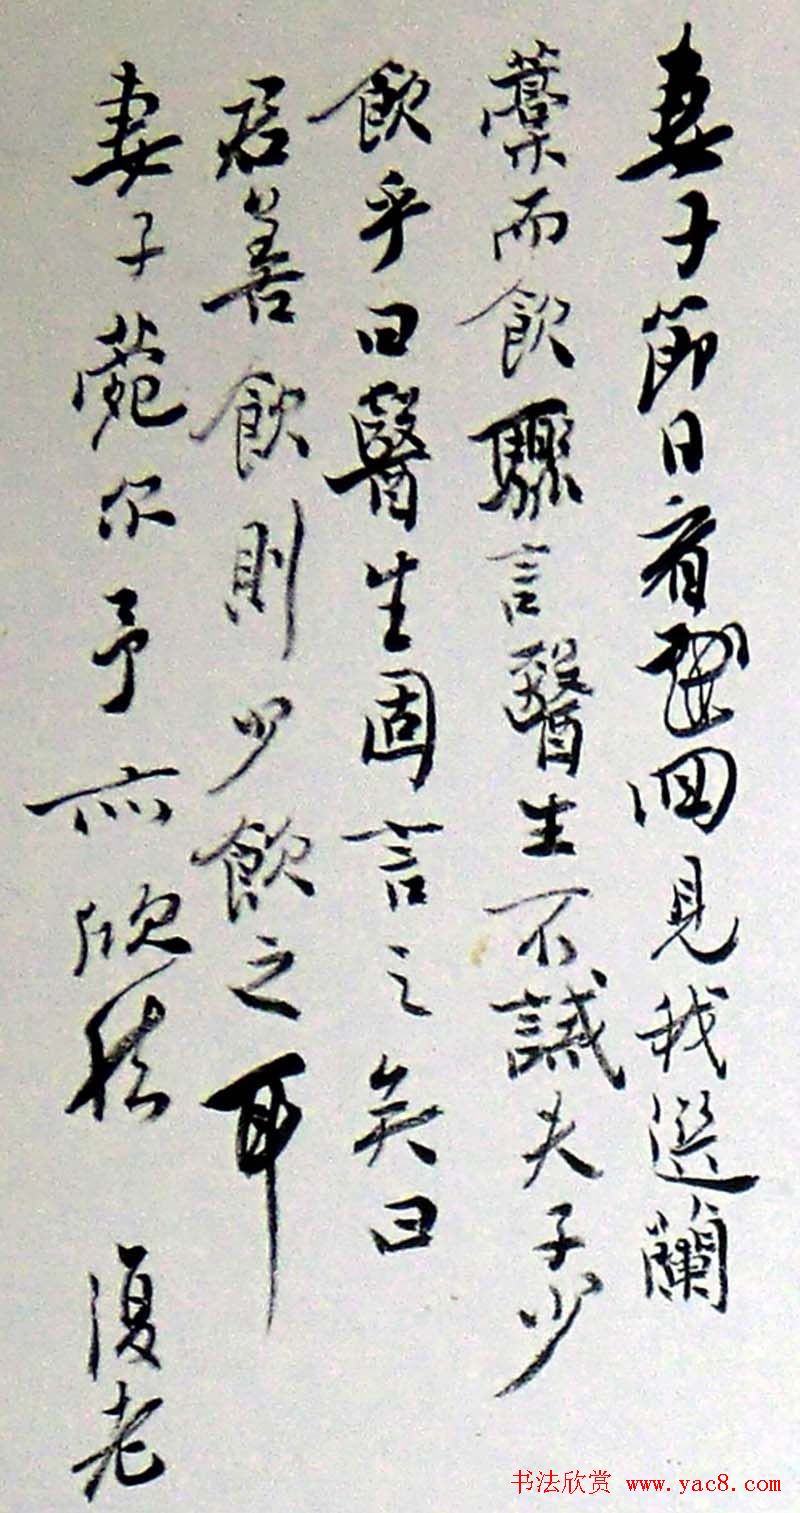 妻子節日看戲回見我選蘭
藁而飲驟言醫生不誡夫子少
飲乎曰醫生固言之矣曰
君善飲則少飲之耳
妻子菀尔予亦欣然 復老
书法欣赏 www.yac8.com